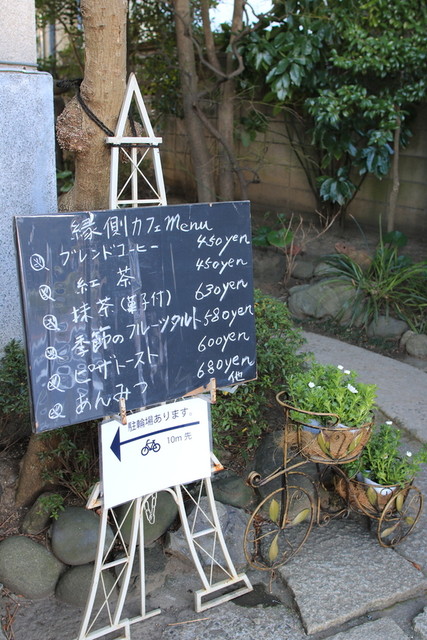 縁側カフェ Menu
ブレンドコーヒー 450yen
紅茶 450yen
抹茶(菓子付) 630yen
季節のフルーツタルト 580yen
ピザトースト 600yen
あんみつ 680yen
他
駐輪場あります。
10m先